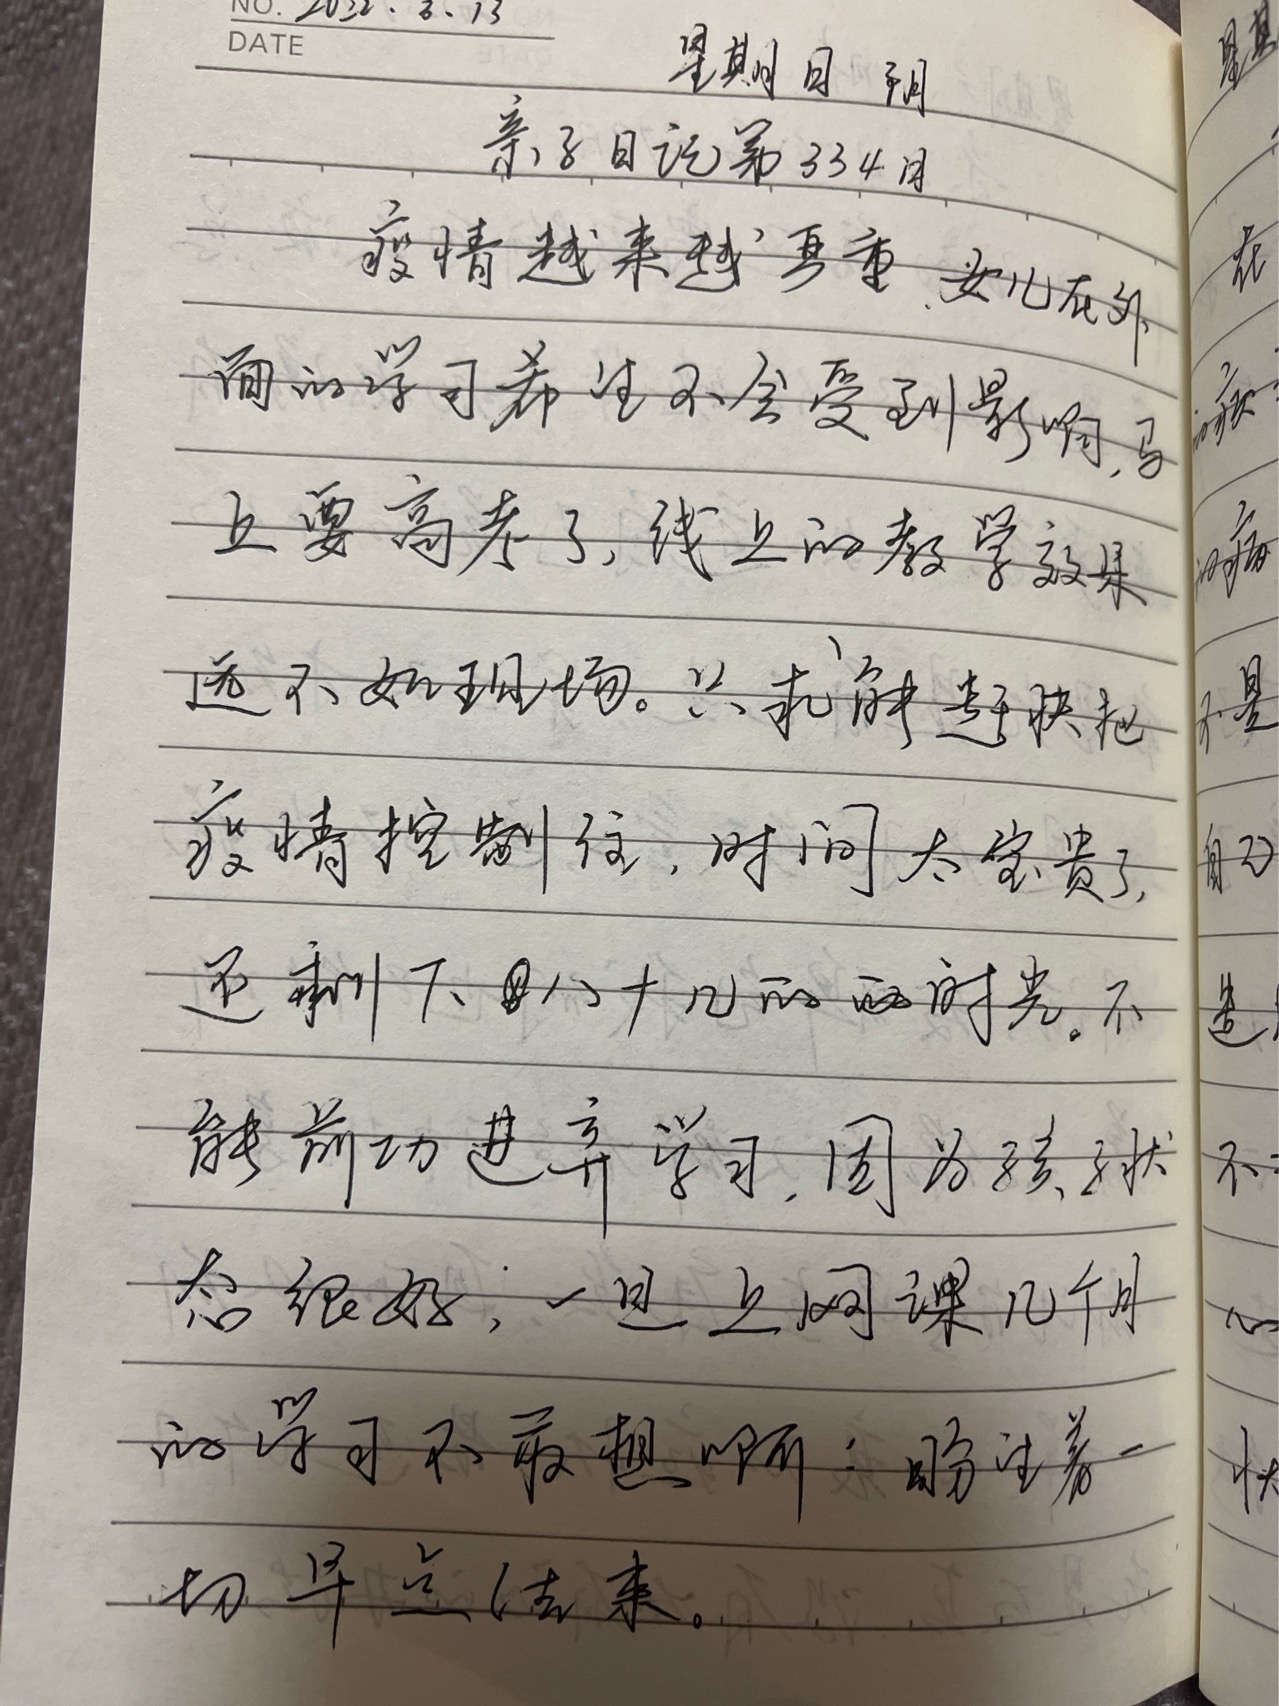 NO. 2022.3.13
DATE
星期日 阴
亲子日记第334月
疫情越来越严重,女儿在外
面的学习希望不会受到影响,马
上要高考了,线上的教学效果
远不如现场。只求能赶快把
疫情控制住,时间太宝贵了,
还剩下八十几的的时光。不
能前功进弃学习,因为孩子状
态很好,一旦上网课几个月
的学习不敢想啊:盼望着一
切早点结束。
星期
在
的疫
的病
不是
自己
不
心
快